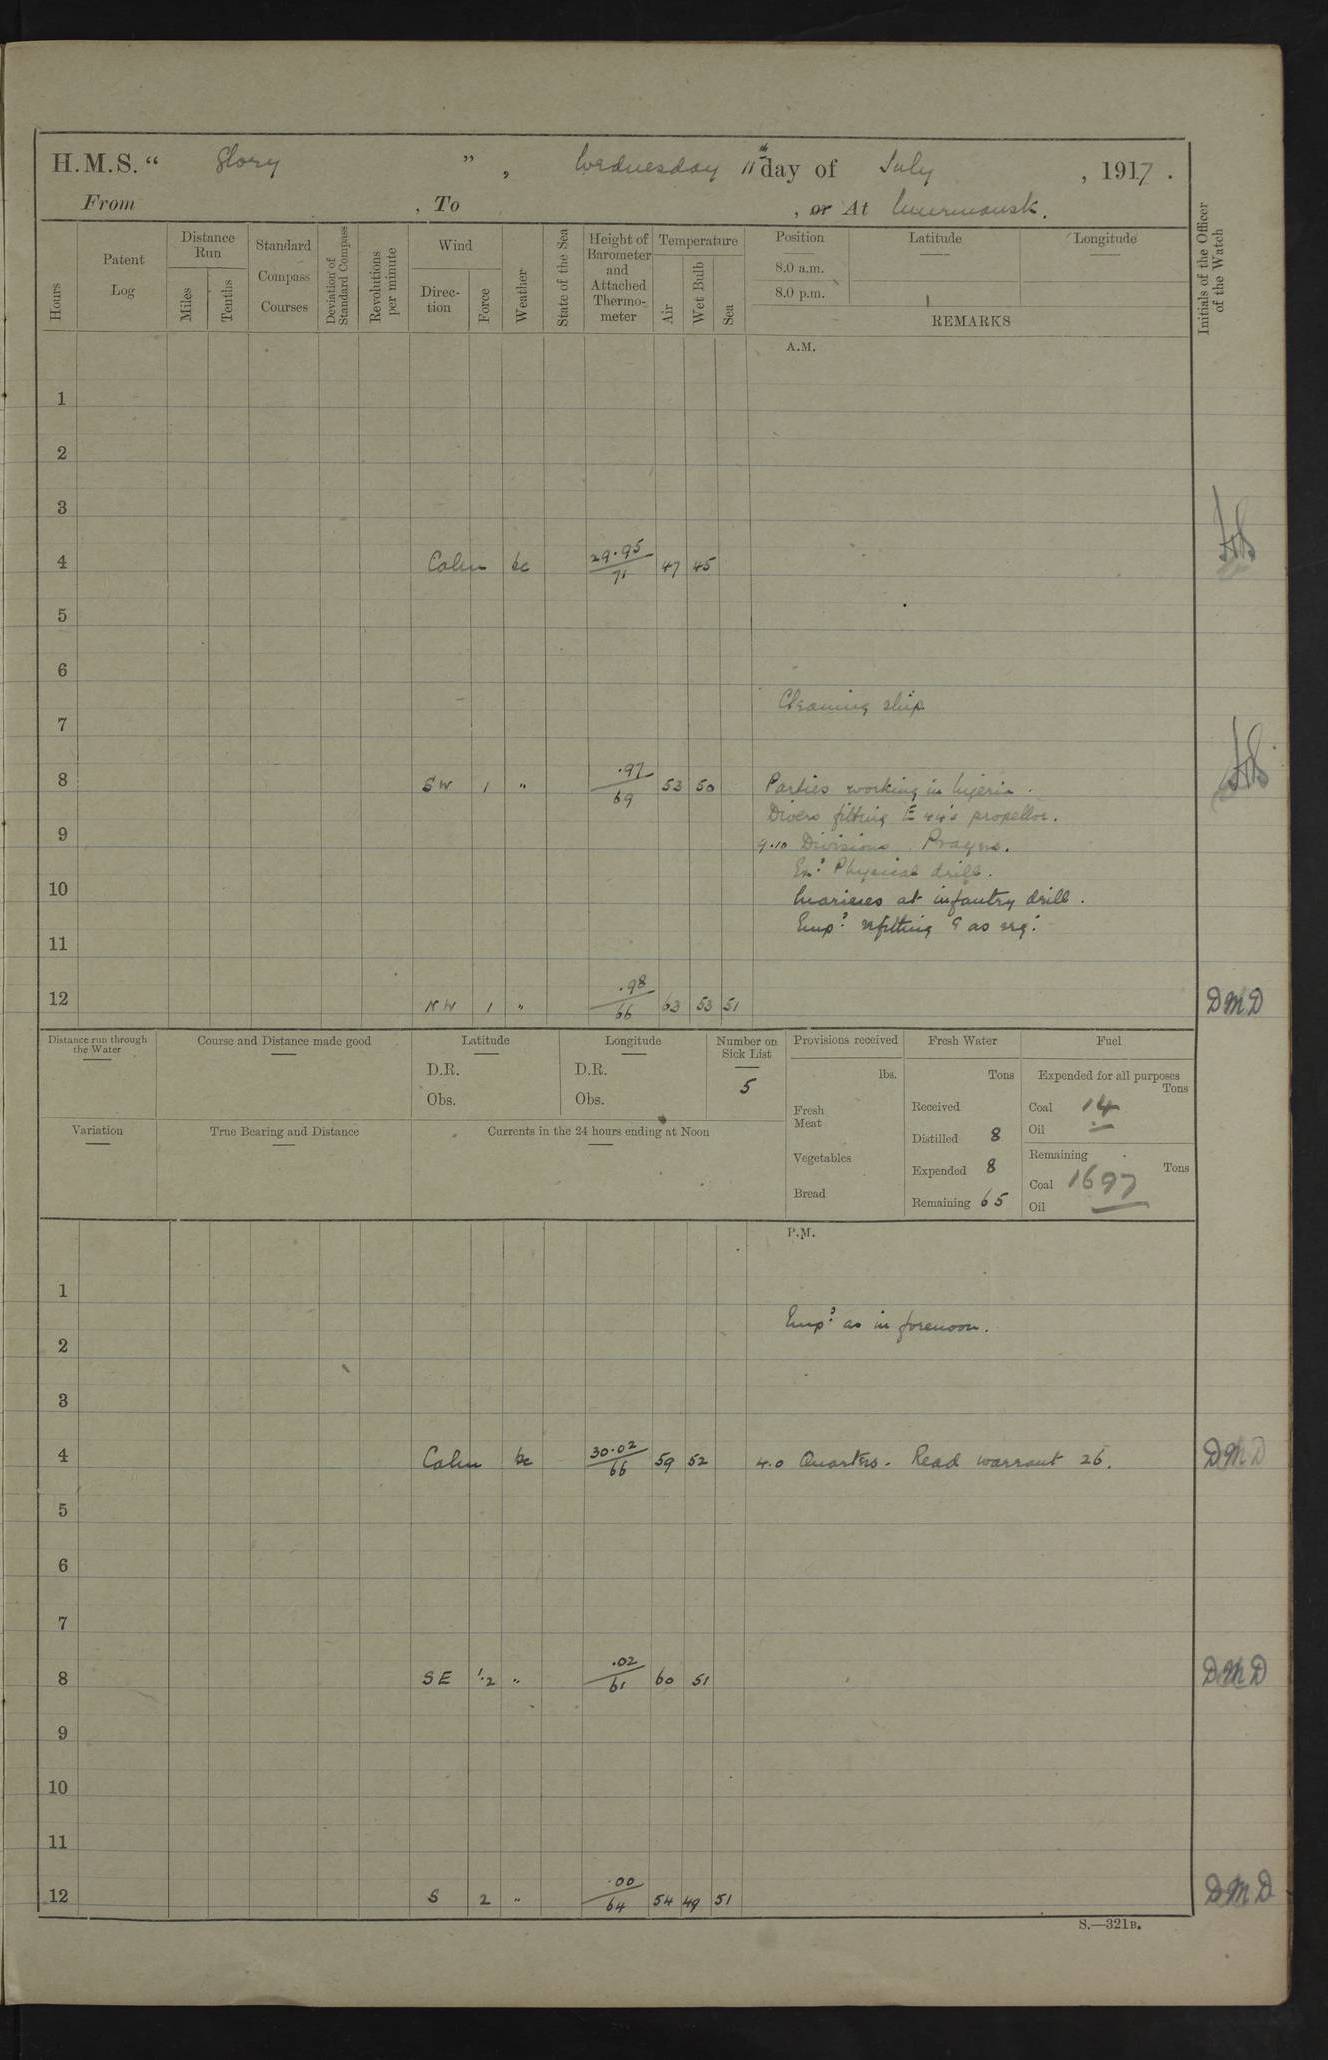 H.M.S. “ Glory ” , Wednesday 11th day of July , 1917 .
From , To , or At Murmansk.
Hours
Patent Log
Distance Run
Miles
Tenths
Standard Compass Courses
Deviation of Standard Compass
Revolutions per minute
Wind
Direction
Force
Weather
State of the Sea
Height of Barometer and Attached Thermometer
Temperature
Air
Wet Bulb
Sea
Position
8.0 a.m.
8.0 p.m.
Latitude
Longitude
REMARKS
Initials of the Officer of the Watch
A.M.
1
2
3
4 Calm bc 29.95/71 47 45
5
6
Cleaning ship
7
8 SW 1 " .97/69 53 50 Parties working in
Divers fitting E 44's propellor.
9
9.10 Divisions. Prayers.
Physical drill.
10
Marines at infantry drill.
Emp:d refitting & as req:
11
12 NW 1 " .98/66 63 53 51 DMD
Distance run through the Water
Course and Distance made good
Latitude
D.R.
Obs.
Longitude
D.R.
Obs.
Number on Sick List
5
Variation
True Bearing and Distance
Currents in the 24 hours ending at Noon
Provisions received
lbs.
Fresh Meat
Vegetables
Bread
Fresh Water
Tons
Received
Distilled 8
Expended 8
Remaining 65
Fuel
Expended for all purposes
Tons
Coal 14
Oil
Remaining
Tons
Coal 1697
Oil
P.M.
1
Emp:d as in forenoon.
2
3
4 Calm bc 30.02/66 59 52 4.0 Quarters. Read warrant 26. DMD
5
6
7
8 SE 1.2 " .02/61 60 51 DMD
9
10
11
12 S 2 " .00/64 54 49 51 DMD
S.—321B.